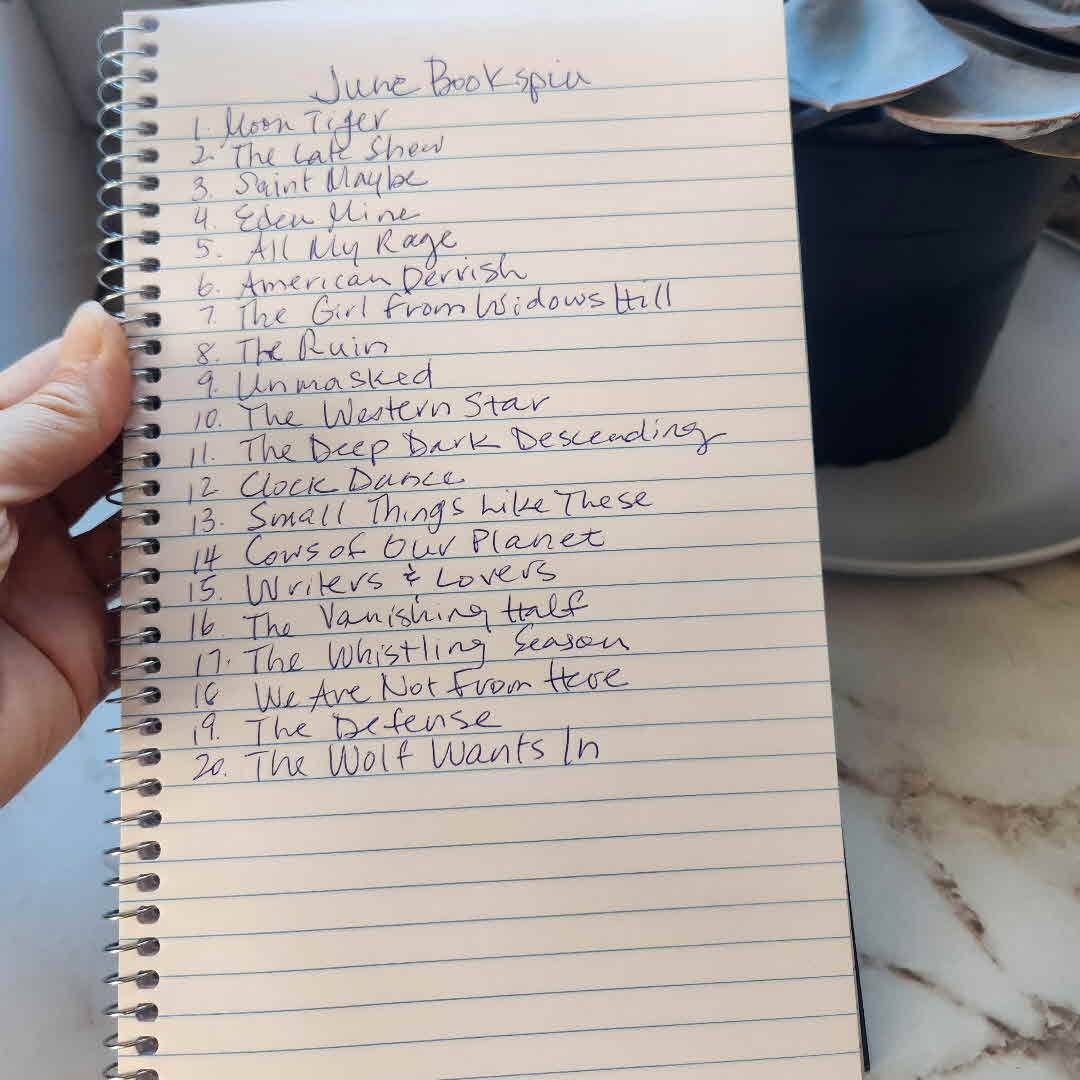 June Bookspin
1. Moon Tiger
2. The Late Show
3. Saint Maybe
4. Eden Mine
5. All My Rage
6. American Dervish
7. The Girl from Widows Hill
8. The Ruin
9. Unmasked
10. The Western Star
11. The Deep Dark Descending
12 Clock Dance
13. Small Things Like These
14 Cows of Our Planet
15. Writers & Lovers
16. The Vanishing Half
17. The Whistling Season
18 We Are Not From Here
19. The Defense
20. The Wolf Wants In